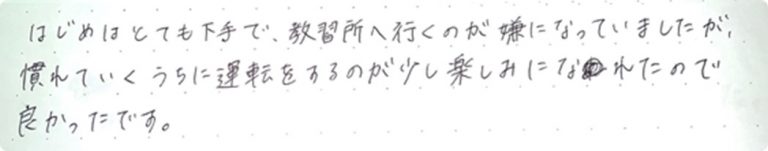 はじめはとても下手で、教習所へ行くのが嫌になっていましたが、
慣れていくうちに運転をするのが少し楽しみになれたので
良かったです。